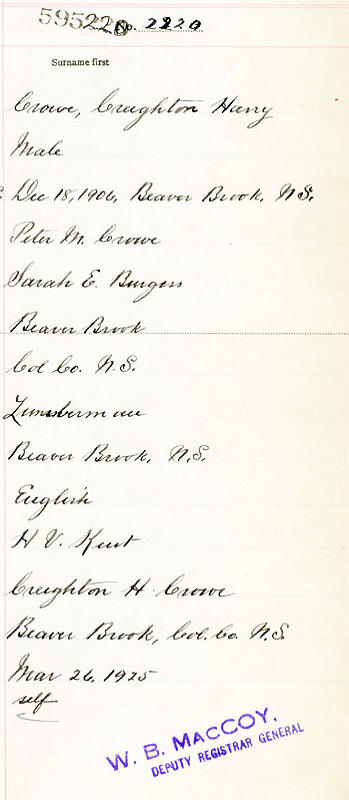 595220 No. 2220
Surname first
Crowe, Creighton Harry
Male
Dec 18, 1906, Beaver Brook, N.S.
Peter M. Crowe
Sarah E. Burgess
Beaver Brook
Col Co. N.S.
Lumberman
Beaver Brook, N.S.
English
H V. Kent
Creighton H. Crowe
Beaver Brook, Col. Co. N.S.
Mar 26, 1925
self
W. B. MACCOY,
DEPUTY REGISTRAR GENERAL